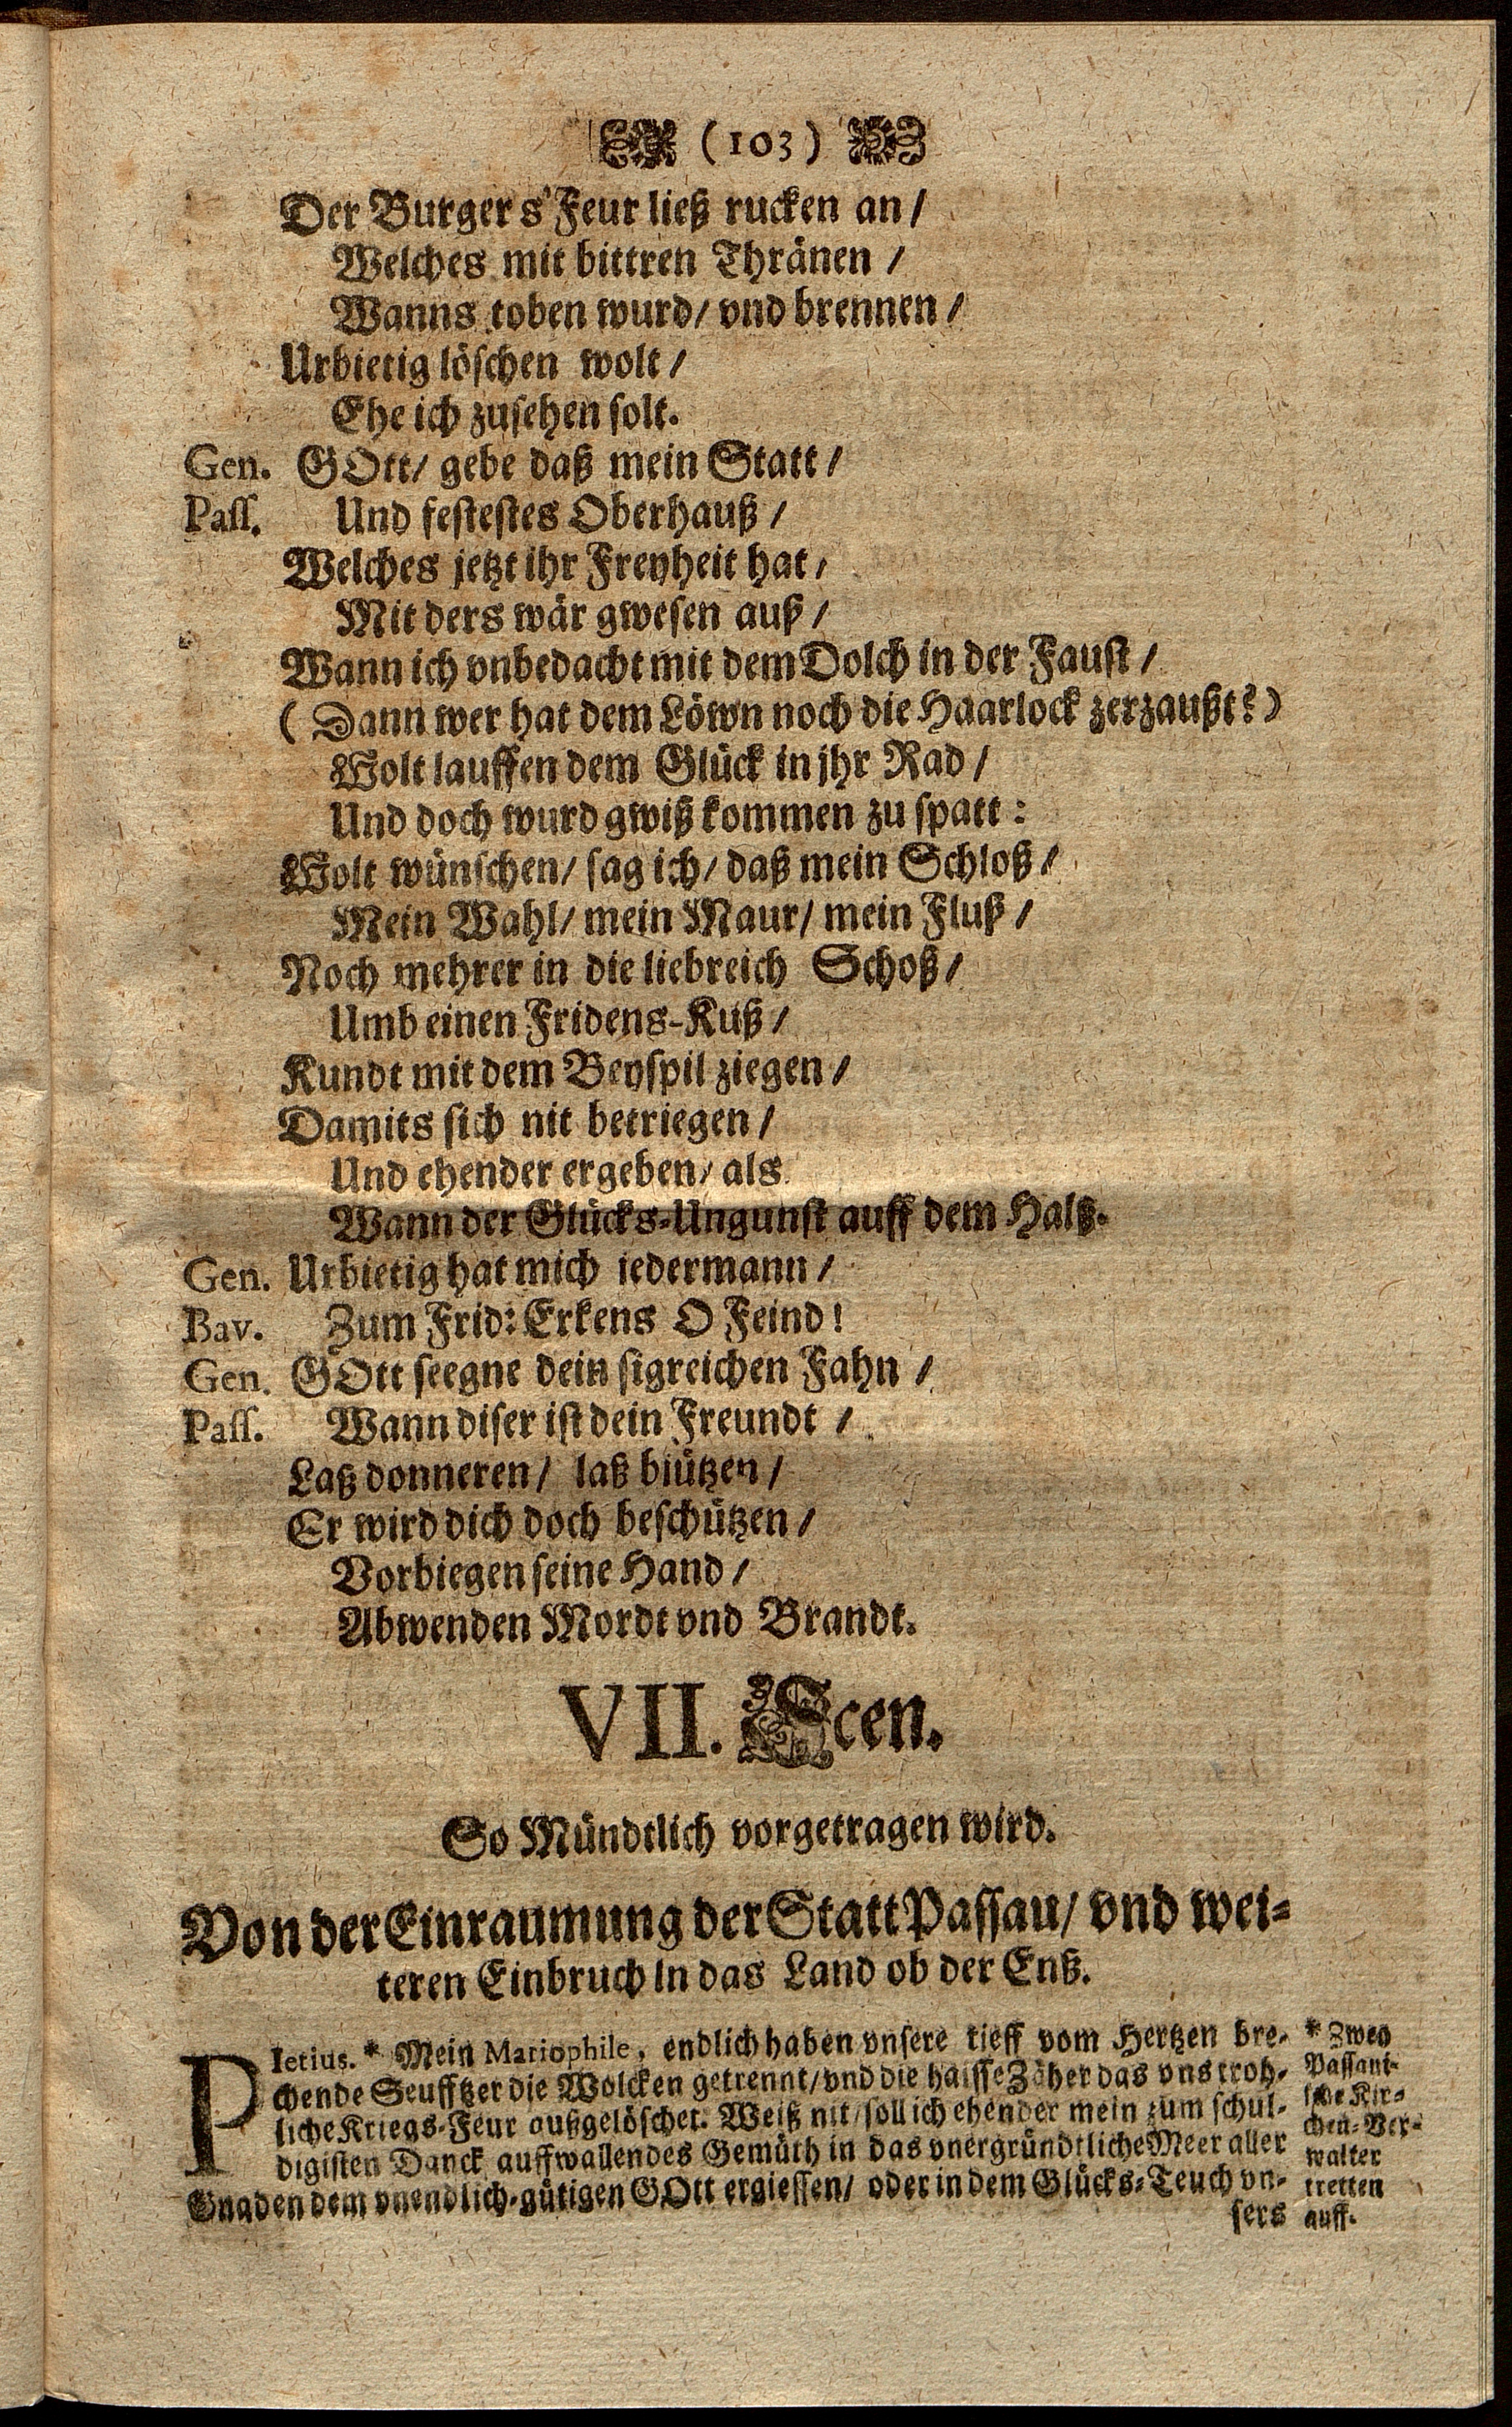 (103)
Der Burgers Feur ließ rucken an/
Welches mit bittren Thränen /
Wanns toben wurd/ vnd brennen/
Urbietig löschen wolt/
Ehe ich zusehen solt.
Gen. GOtt/ gebe daß mein Statt/
Pass. Und festestes Oberhauß /
Welches jetzt ihr Freyheit hat/
Mit ders wär gwesen auß /
Wann ich vnbedacht mit dem Dolch in der Faust /
( Dann wer hat dem Löwn noch die Haarlock zerzaußt?)
Wolt lauffen dem Glück in jhr Rad/
Und doch wurd gwiß kommen zu spatt:
Wolt wünschen/ sag ich/ daß mein Schloß/
Mein Wahl/ mein Maur/ mein Fluß /
Noch mehrer in die liebreich Schoß/
Umb einen Fridens-Kuß/
Kundt mit dem Beyspil ziegen/
Damits sich nit betriegen/
Und ehender ergeben/ als
Wann der Glücks-Ungunst auff dem Halß.
Gen. Urbietig hat mich jedermann/
Bav. Zum Frid: Erkens O Feind!
Gen. GOtt seegne dein sigreichen Fahn /
Pass. Wann diser ist dein Freundt /
Laß donneren/ laß blützen/
Er wird dich doch beschützen/
Vorbiegen seine Hand/
Abwenden Mordt vnd Brandt.
VII. Scen.
So Mündtlich vorgetragen wird.
Von der Einraumung der Statt Passau/ vnd wei-
teren Einbruch in das Land ob der Enß.
PIetius. * Mein Mariophile, endlich haben vnsere tieff vom Hertzen bre-
chende Seufftzer die Wolcken getrennt/ vnd die haisse Zäher das vns troh-
liche Kriegs-Feur außgelöschet. Weiß nit/ soll ich ehender mein zum schul-
digisten Danck auffwallendes Gemüth in das vnergründtliche Meer aller
Gnaden dem vnendlich-gütigen GOtt ergiessen/ oder in dem Glücks-Teuch vn-
sers
* Zwey
Passaui-
sche Kir-
chen-Ver-
walter
tretten
auff.